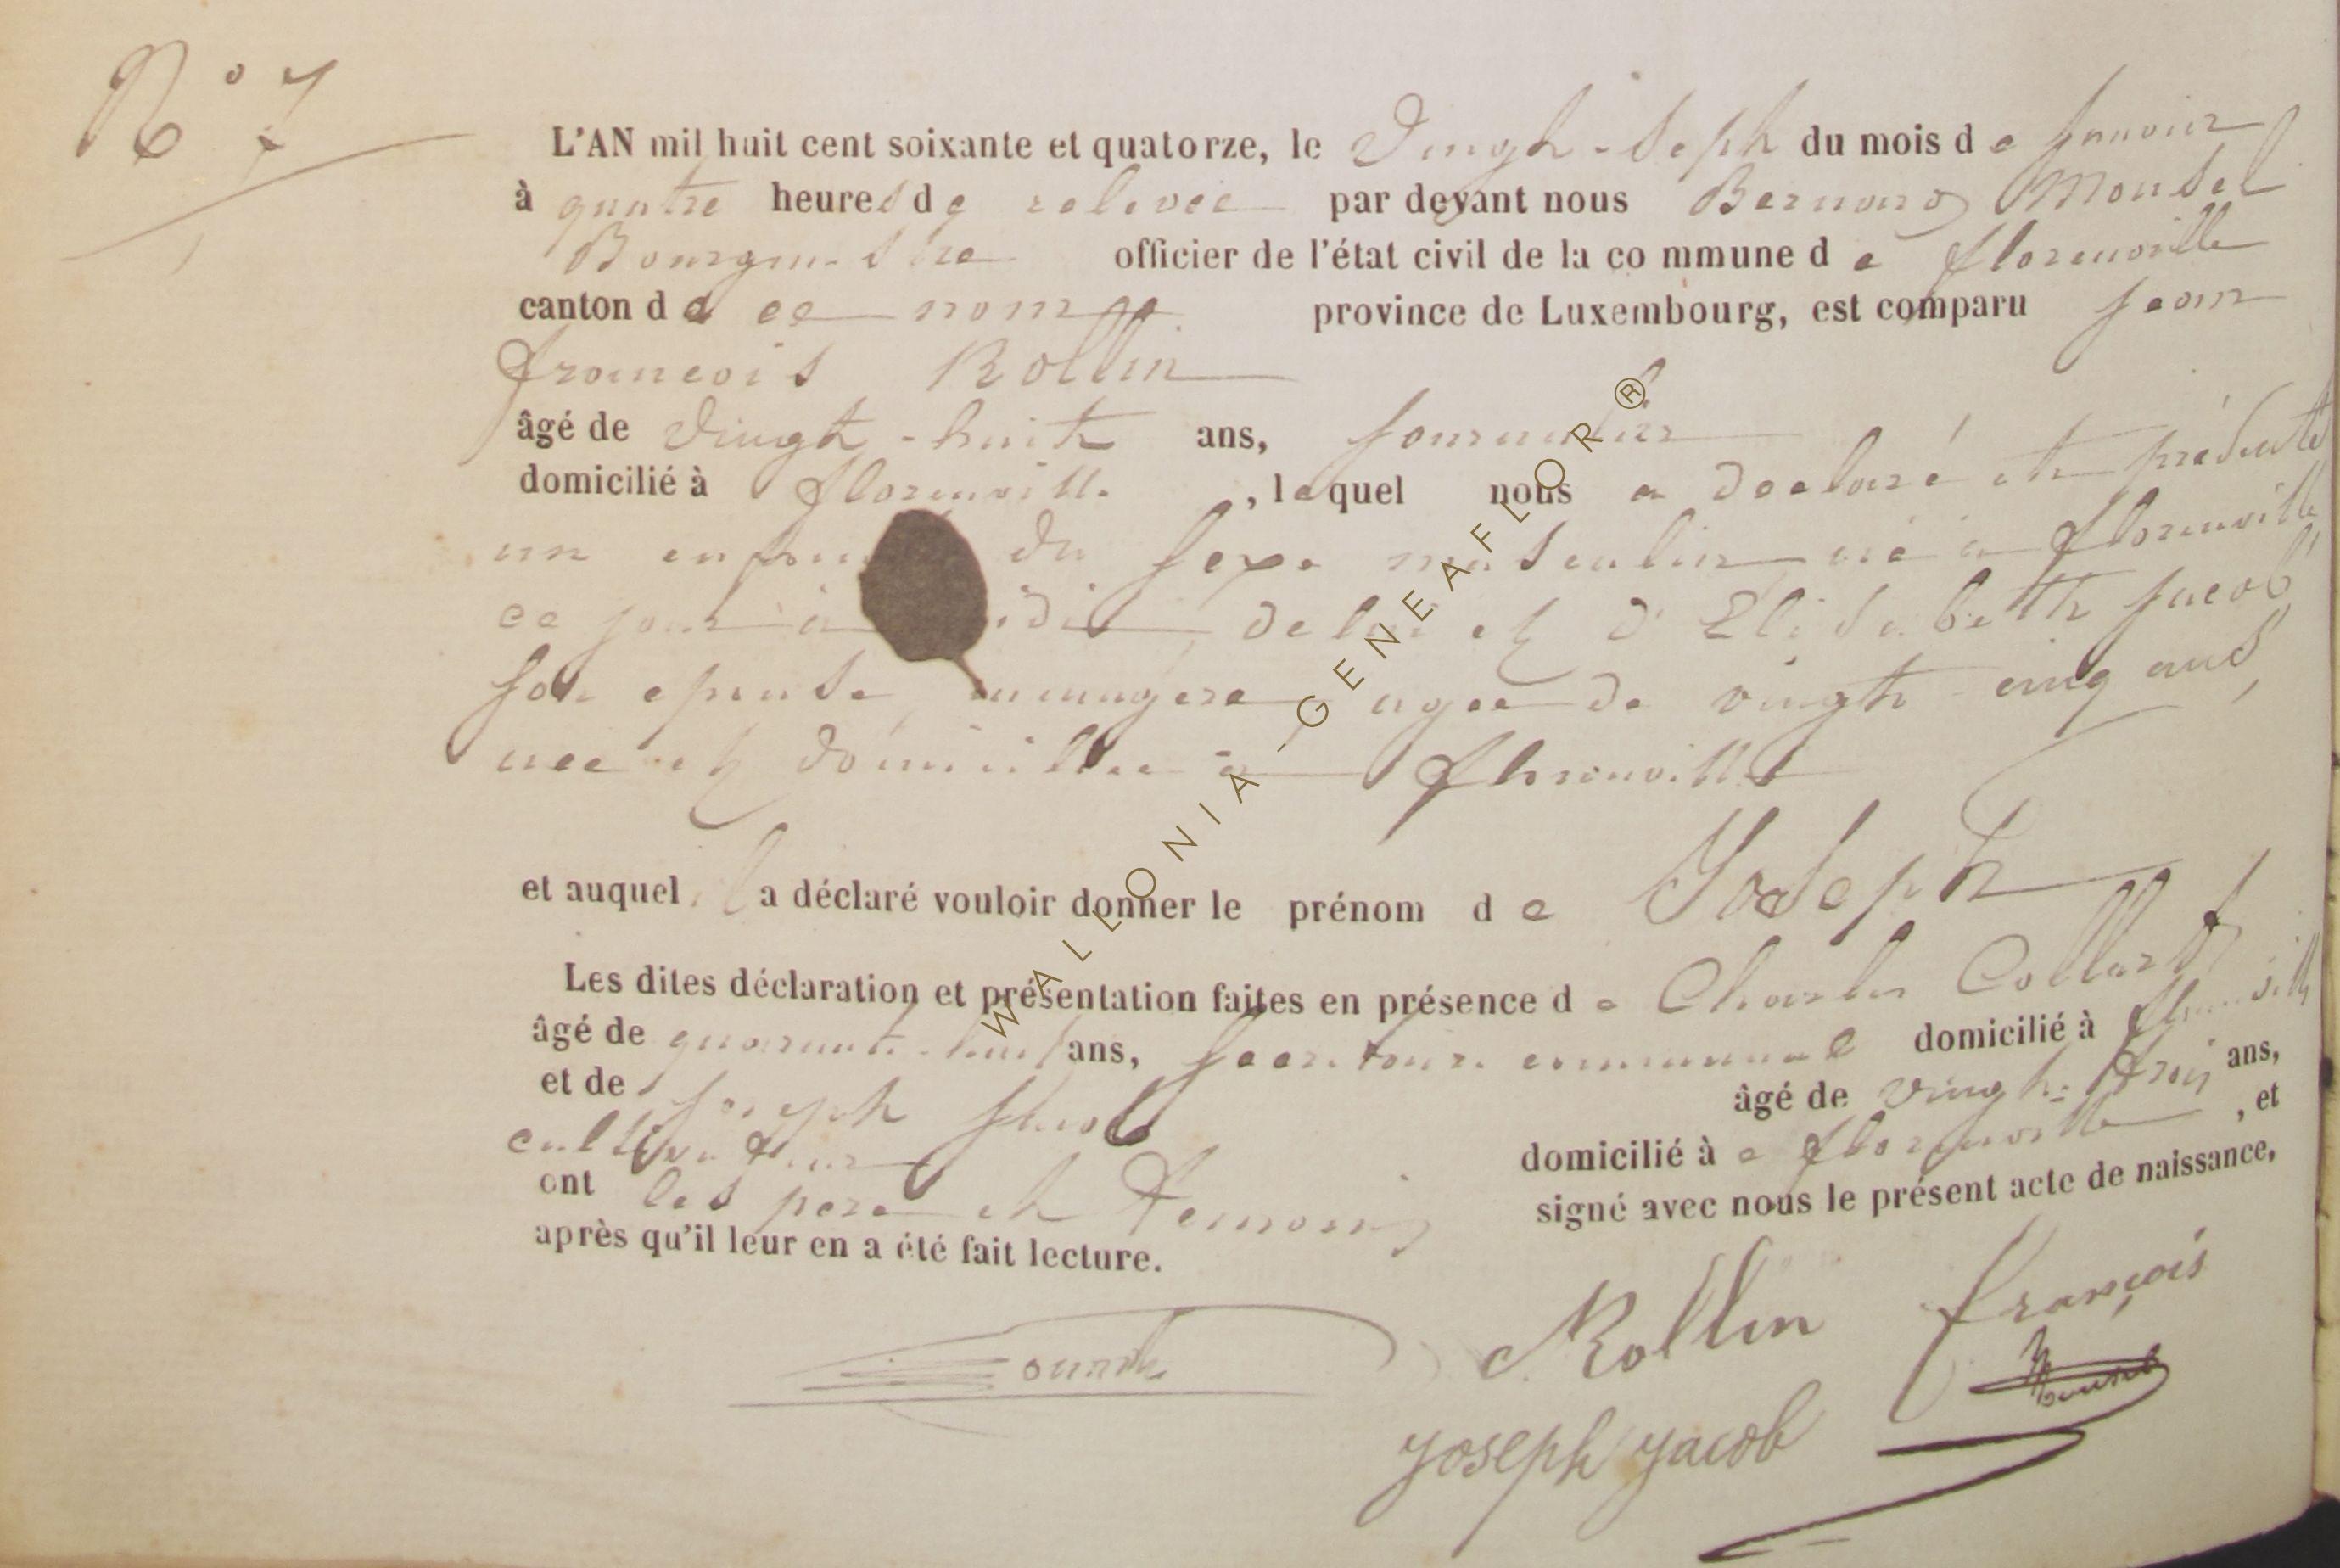 N° 7
L'AN mil huit cent soixante et quatorze, le Vingt-Sept du mois de Janvier
à quatre heures de relevée par devant nous Bernard Mousel
Bourgmestre officier de l'état civil de la commune de florenville
canton de ce nom province de Luxembourg, est comparu Jean
francois Rollin
âgé de Vingt-huit ans, Journalier
domicilié à florenville, lequel nous a declaré et présenté
un enfant du Sexe masculin né à florenville
ce jour à midi, de lui et d'Elisabeth Jacob
Son epouse, menagere agee de vingt cinq ans,
nee et domiciliee à florenville
et auquel il a déclaré vouloir donner le prénom de Joseph
Les dites déclaration et présentation faites en présence de Charles Collard
âgé de quarante-huit ans, Secretaire communal domicilié à florenville
et de Joseph Jacob âgé de vingt-trois ans,
cultivateur domicilié à florenville, et
ont les pere et temoins signé avec nous le présent acte de naissance,
après qu'il leur en a été fait lecture.
Rollin françois
Mousel
Joseph Jacob
WALLONIA-GENEAFLOR®